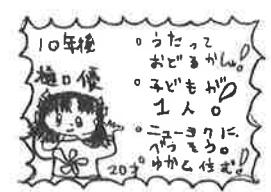 10年後
樋口優
20才
。うたって
おどるかしゅ!
。子どもが
1人。
。ニューヨークに
べっそう。
ゆかと住む!